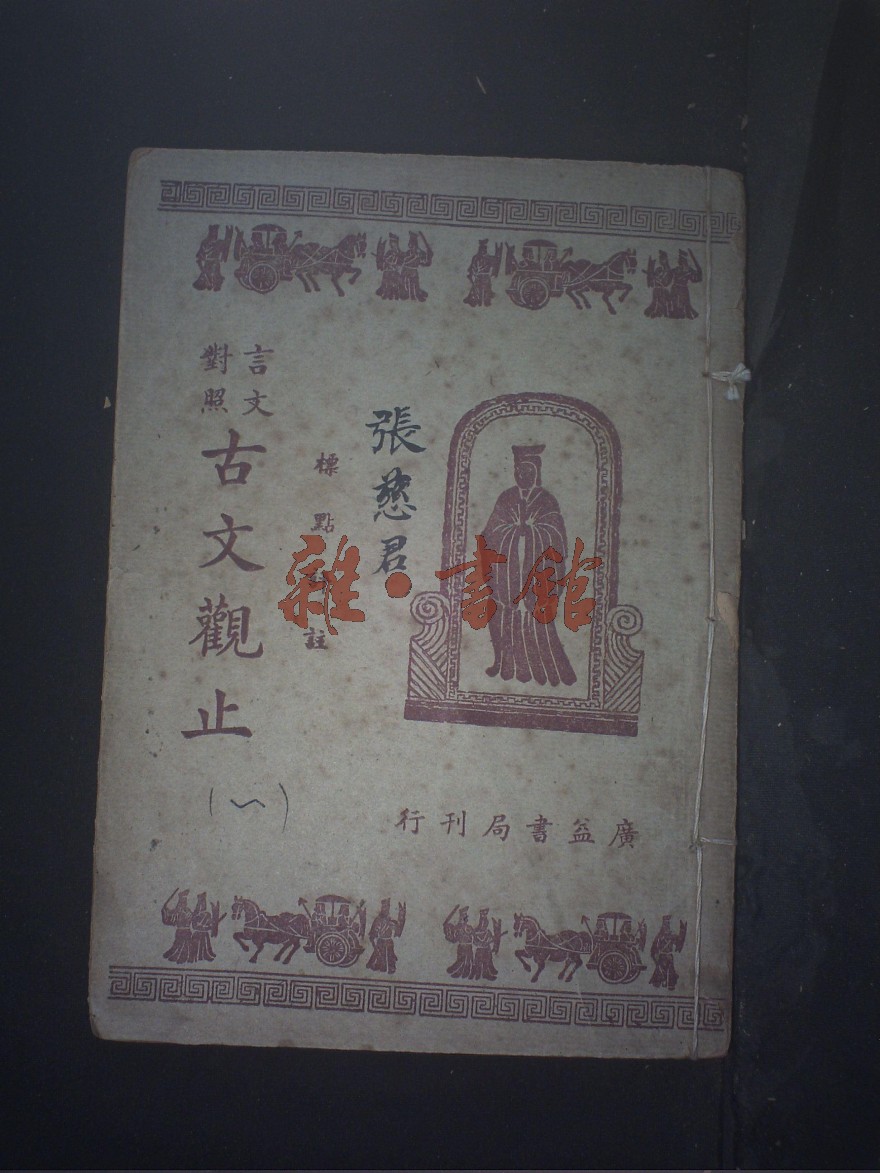 張慈君
標點註
言文
對照
古文觀止
(一)
廣益書局刊行
雜·書館